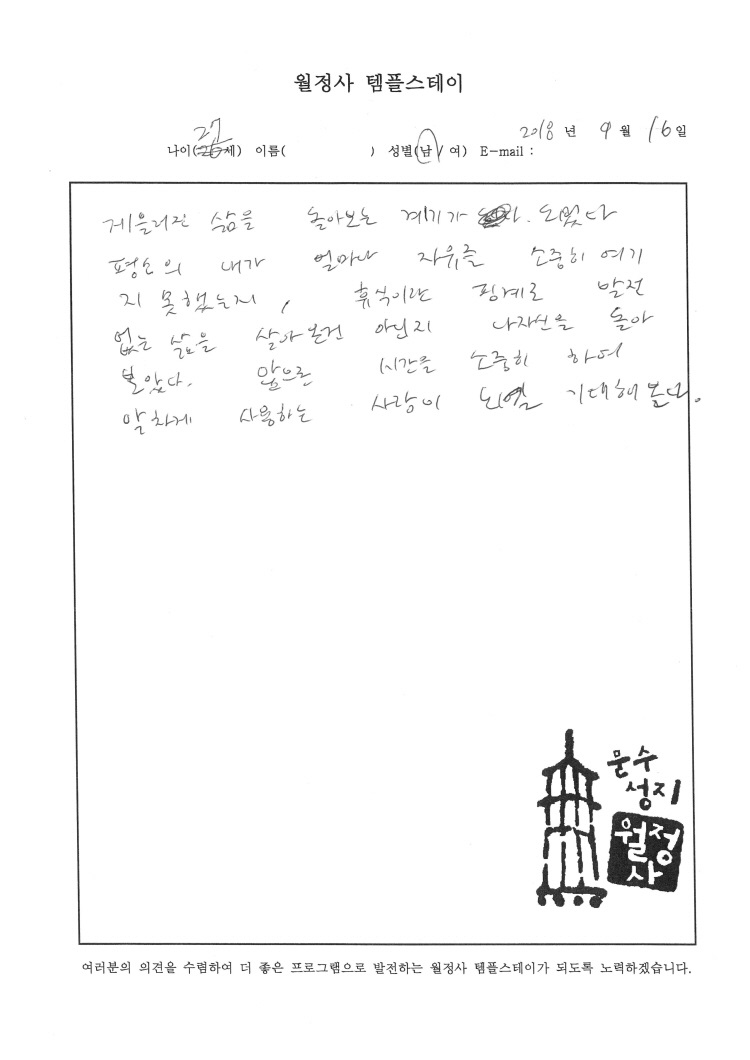 월정사 템플스테이
2018 년 9 월 16 일
27
나이(26세) 이름( ) 성별(남/여) E-mail :
게을러진 삶을 돌아보는 계기가 되었다
평소의 내가 얼마나 자유를 소중히 여기
지 못했는지, 휴식이란 핑계로 발전
없는 삶을 살아온건 아닌지 나자신을 돌아
보았다. 앞으론 시간을 소중히 하여
알차게 사용하는 사람이 되길 기대해본다.
문수
성지
월정
사
여러분의 의견을 수렴하여 더 좋은 프로그램으로 발전하는 월정사 템플스테이가 되도록 노력하겠습니다.